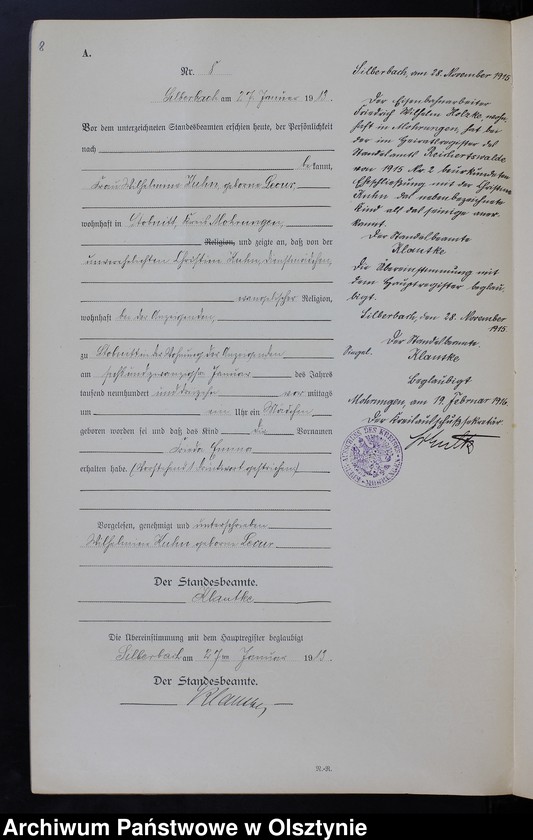 8
A.
Nr. 8
Silberbach am 27 Januar 1913.
Vor dem unterzeichneten Standesbeamten erschien heute, der Persönlichkeit
nach
bekannt,
Frau Wilhelmine Kuhn, geborne
wohnhaft in Stobnitt, Kreis Mohrungen,
Religion, und zeigte an, daß von der
unverehelichten Christine Kuhn, Dienstmädchen,
evangelischer Religion,
wohnhaft bei der Anzeigenden,
zu Stobnitt in der Wohnung der Anzeigenden
am sechsundzwanzigsten Januar des Jahres
tausend neunhundert und dreizehn vor mittags
um Uhr ein Mädchen
geboren worden sei und daß das Kind die Vornamen
Emma
erhalten habe. (Vorstehend 1 Druckwort gestrichen)
Vorgelesen, genehmigt und unterschrieben
Wilhelmine Kuhn geborne
Der Standesbeamte.
Klautke
Die Übereinstimmung mit dem Hauptregister beglaubigt
Silberbach am 27ten Januar 1913.
Der Standesbeamte.
Klautke
R.-R.
Silberbach, am 28. November 1915
Der Eisenbahnarbeiter
Friedrich Wilhelm wohn-
haft in Mohrungen, hat bei
der im Heiratsregister des
Standesamts Reichertswalde
von 1915 Nr. 2 beurkundeten
Eheschließung mit der Christine
Kuhn das nebenbezeichnete
Kind als das seinige aner-
kannt.
Der Standesbeamte
Klautke
Die Übereinstimmung mit
dem Hauptregister beglau-
bigt.
Silberbach, den 28. November
1915.
Der Standesbeamte.
Siegel. Klautke
Beglaubigt
Mohrungen, am 19. Februar 1916
Der Kreisausschußsekretär
KREIS-AUSSCHUSS DES KREISES MOHRUNGEN
Archiwum Państwowe w Olsztynie